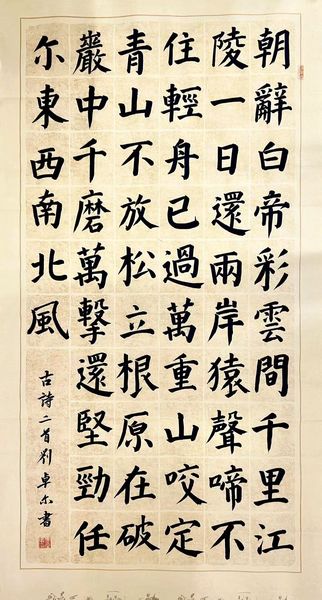 朝辭白帝彩雲間千里江
陵一日還兩岸猿聲啼不
住輕舟已過萬重山咬定
青山不放松立根原在破
嚴中千磨萬擊還堅勁任
尔東西南北風
古詩二首刘卓尔書